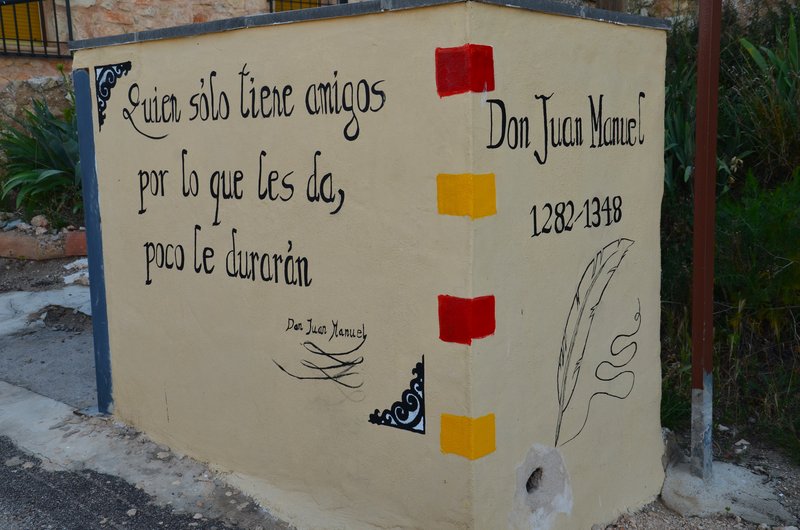 Quien sólo tiene amigos
por lo que les da,
poco le durarán
Don Juan Manuel
Don Juan Manuel
1282-1348